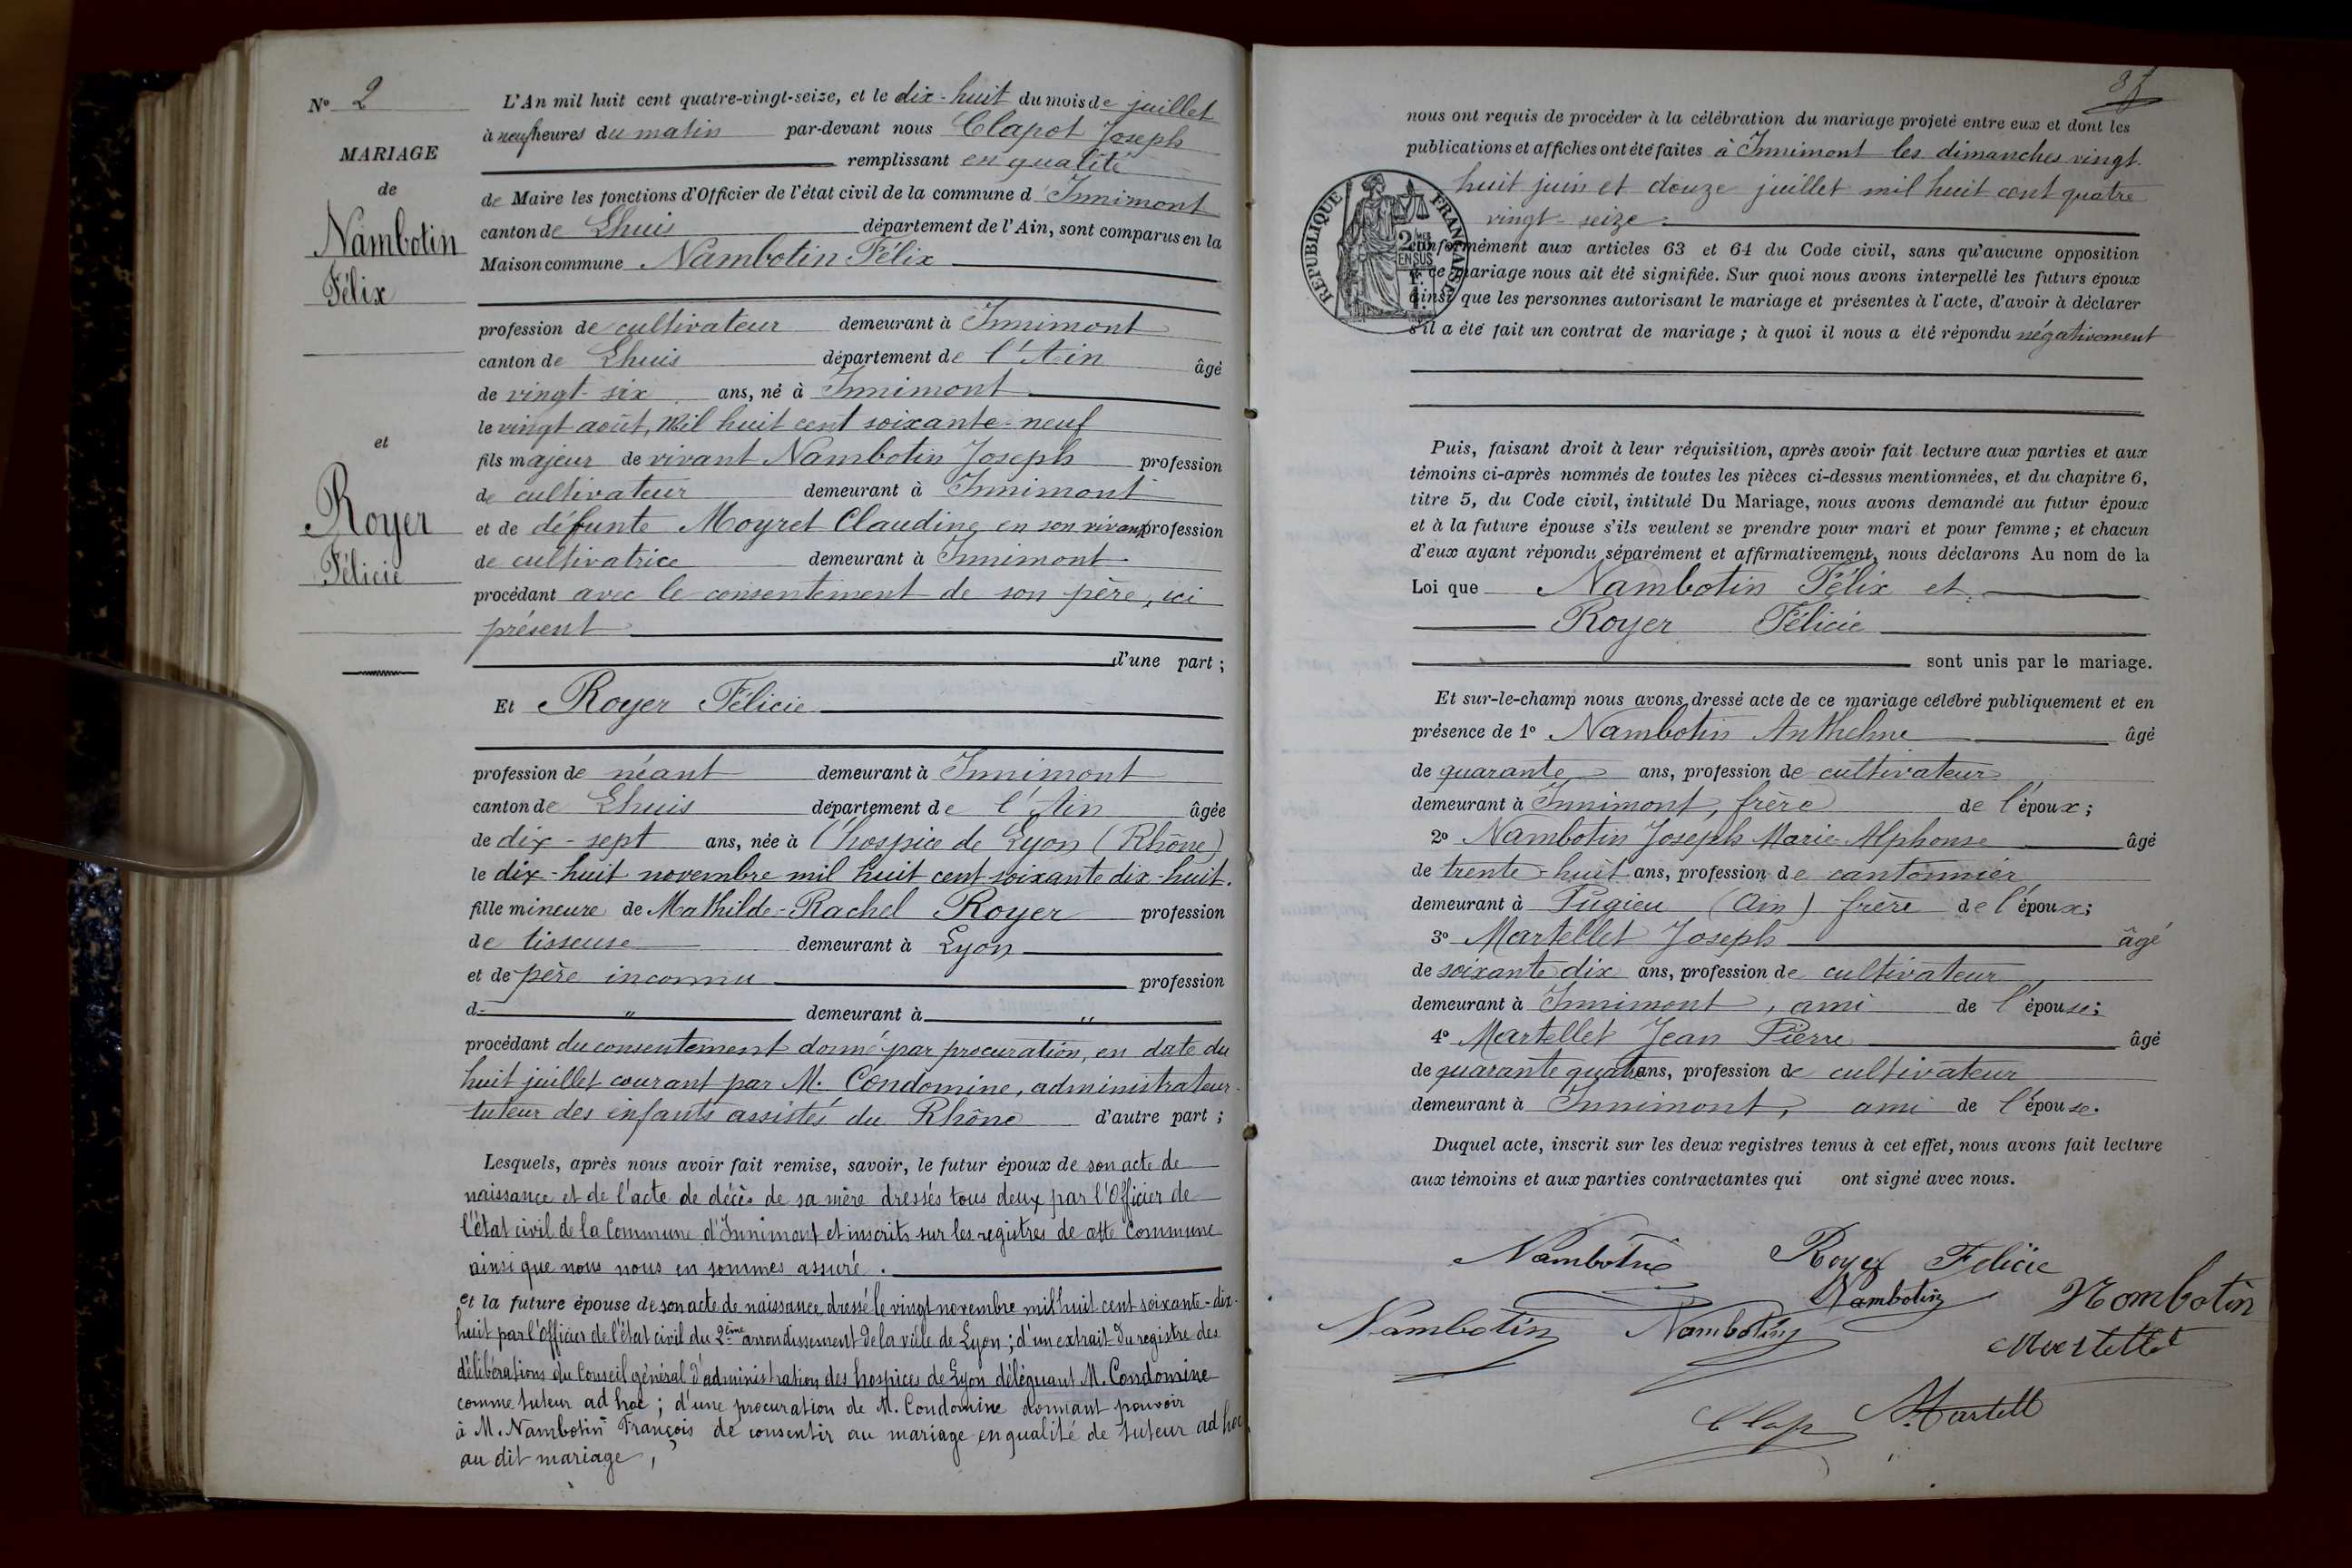 N° 2
MARIAGE
de
Nambotin
Félix
et
Royer
Félicie
L'An mil huit cent quatre-vingt-seize, et le dix-huit du mois de juillet
à neuf heures du matin par-devant nous Clapot Joseph
remplissant en qualité
de Maire les fonctions d'Officier de l'état civil de la commune d'Innimont
canton de Lhuis département de l'Ain, sont comparus en la
Maison commune Nambotin Félix
profession de cultivateur demeurant à Innimont
canton de Lhuis département de l'Ain âgé
de vingt-six ans, né à Innimont
le vingt août, mil huit cent soixante-neuf
fils majeur de vivant Nambotin Joseph profession
de cultivateur demeurant à Innimont
et de défunte Moyret Claudine en son vivant profession
de cultivatrice demeurant à Innimont
procédant avec le consentement de son père, ici
présent
d'une part ;
Et Royer Félicie
profession de néant demeurant à Innimont
canton de Lhuis département de l'Ain âgée
de dix-sept ans, née à l'hospice de Lyon (Rhône)
le dix-huit novembre mil huit cent soixante dix-huit.
fille mineure de Mathilde-Rachel Royer profession
de tisseuse demeurant à Lyon
et de père inconnu profession
d- " demeurant à "
procédant du consentement donné par procuration, en date du
huit juillet courant par M. Condomine, administrateur-
tuteur des enfants assistés du Rhône d'autre part ;
Lesquels, après nous avoir fait remise, savoir, le futur époux de son acte de
naissance et de l'acte de décès de sa mère dressés tous deux par l'Officier de
l'état civil de la Commune d'Innimont et inscrits sur les registres de cette Commune
ainsi que nous nous en sommes assuré.
et la future épouse de son acte de naissance, dressé le vingt novembre mil huit cent soixante-dix-
huit par l'officier de l'état civil du 2ème arrondissement de la ville de Lyon ; d'un extrait du registre des
délibérations du Conseil général d'administration des hospices de Lyon déléguant M. Condomine
comme tuteur ad hoc ; d'une procuration de M. Condomine donnant pouvoir
à M. Nambotin François de consentir au mariage en qualité de tuteur ad hoc
au dit mariage,
nous ont requis de procéder à la célébration du mariage projeté entre eux et dont les
publications et affiches ont été faites à Innimont les dimanches vingt-
huit juin et douze juillet mil huit cent quatre
vingt-seize.
RÉPUBLIQUE FRANÇAISE
2 MES EN SUS
conformément aux articles 63 et 64 du Code civil, sans qu'aucune opposition
à ce mariage nous ait été signifiée. Sur quoi nous avons interpellé les futurs époux
ainsi que les personnes autorisant le mariage et présentes à l'acte, d'avoir à déclarer
s'il a été fait un contrat de mariage ; à quoi il nous a été répondu négativement
Puis, faisant droit à leur réquisition, après avoir fait lecture aux parties et aux
témoins ci-après nommés de toutes les pièces ci-dessus mentionnées, et du chapitre 6,
titre 5, du Code civil, intitulé Du Mariage, nous avons demandé au futur époux
et à la future épouse s'ils veulent se prendre pour mari et pour femme ; et chacun
d'eux ayant répondu séparément et affirmativement, nous déclarons Au nom de la
Loi que Nambotin Félix et
Royer Félicie
sont unis par le mariage.
Et sur-le-champ nous avons dressé acte de ce mariage célébré publiquement et en
présence de 1° Nambotin Anthelme âgé
de quarante ans, profession de cultivateur
demeurant à Innimont, frère de l'époux ;
2° Nambotin Joseph Marie-Alphonse âgé
de trente-huit ans, profession de cantonnier
demeurant à Pugieu (Ain) frère de l'époux ;
3° Martellet Joseph âgé
de soixante dix ans, profession de cultivateur
demeurant à Innimont, ami de l'épouse ;
4° Martellet Jean Pierre âgé
de quarante quatre ans, profession de cultivateur
demeurant à Innimont, ami de l'épouse.
Duquel acte, inscrit sur les deux registres tenus à cet effet, nous avons fait lecture
aux témoins et aux parties contractantes qui ont signé avec nous.
Nambotin Royer Felicie
Nambotin Nombotin
Nambotin Nambotin
Martellet
Clap Martell